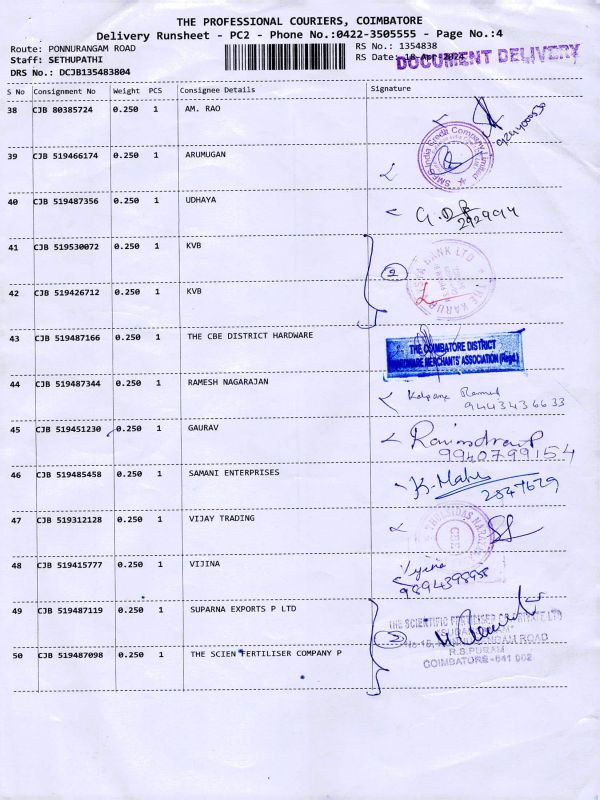 THE PROFESSIONAL COURIERS, COIMBATORE
Delivery Runsheet - PC2 - Phone No.:0422-3505555 - Page No.:4
Route: PONNURANGAM ROAD
RS No.: 1354838
Staff: SETHUPATHI
RS Date: 18 Apr 2024
DOCUMENT DELIVERY
DRS No.: DCJB135483804
S No Consignment No Weight PCS Consignee Details Signature
38 CJB 80385724 0.250 1 AM. RAO
39 CJB 519466174 0.250 1 ARUMUGAN
SMFG India Credit Company Limited
40 CJB 519487356 0.250 1 UDHAYA
2929914
41 CJB 519530072 0.250 1 KVB
2
BANK LTD
42 CJB 519426712 0.250 1 KVB
43 CJB 519487166 0.250 1 THE CBE DISTRICT HARDWARE
THE COIMBATORE DISTRICT
HARDWARE MERCHANTS' ASSOCIATION (Regd.)
44 CJB 519487344 0.250 1 RAMESH NAGARAJAN
Kalpana Ramesh
9443436633
45 CJB 519451230 0.250 1 GAURAV
9940799154
46 CJB 519485458 0.250 1 SAMANI ENTERPRISES
2847629
47 CJB 519312128 0.250 1 VIJAY TRADING
48 CJB 519415777 0.250 1 VIJINA
Vijina
9894398958
49 CJB 519487119 0.250 1 SUPARNA EXPORTS P LTD
2
THE SCIENTIFIC FERTILISER CO PRIVATE LTD
R.S.PURAM
COIMBATORE-641 002
50 CJB 519487098 0.250 1 THE SCIEN FERTILISER COMPANY P